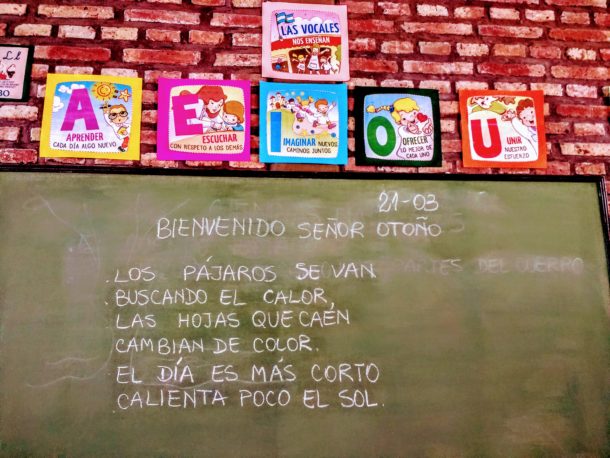 LAS VOCALES
NOS ENSEÑAN
A
APRENDER
CADA DÍA ALGO NUEVO
E
ESCUCHAR
CON RESPETO A LOS DEMÁS
I
IMAGINAR NUEVOS
CAMINOS JUNTOS
O
OFRECER
LO MEJOR DE
CADA UNO
U
UNIR
NUESTRO
ESFUERZO
21-03
BIENVENIDO SEÑOR OTOÑO
.LOS PÁJAROS SE VAN
.BUSCANDO EL CALOR,
.LAS HOJAS QUE CAÉN
CAMBIAN DE COLOR.
.EL DÍA ES MÁS CORTO
.CALIENTA POCO EL SOL.
PARTES DEL CUERPO